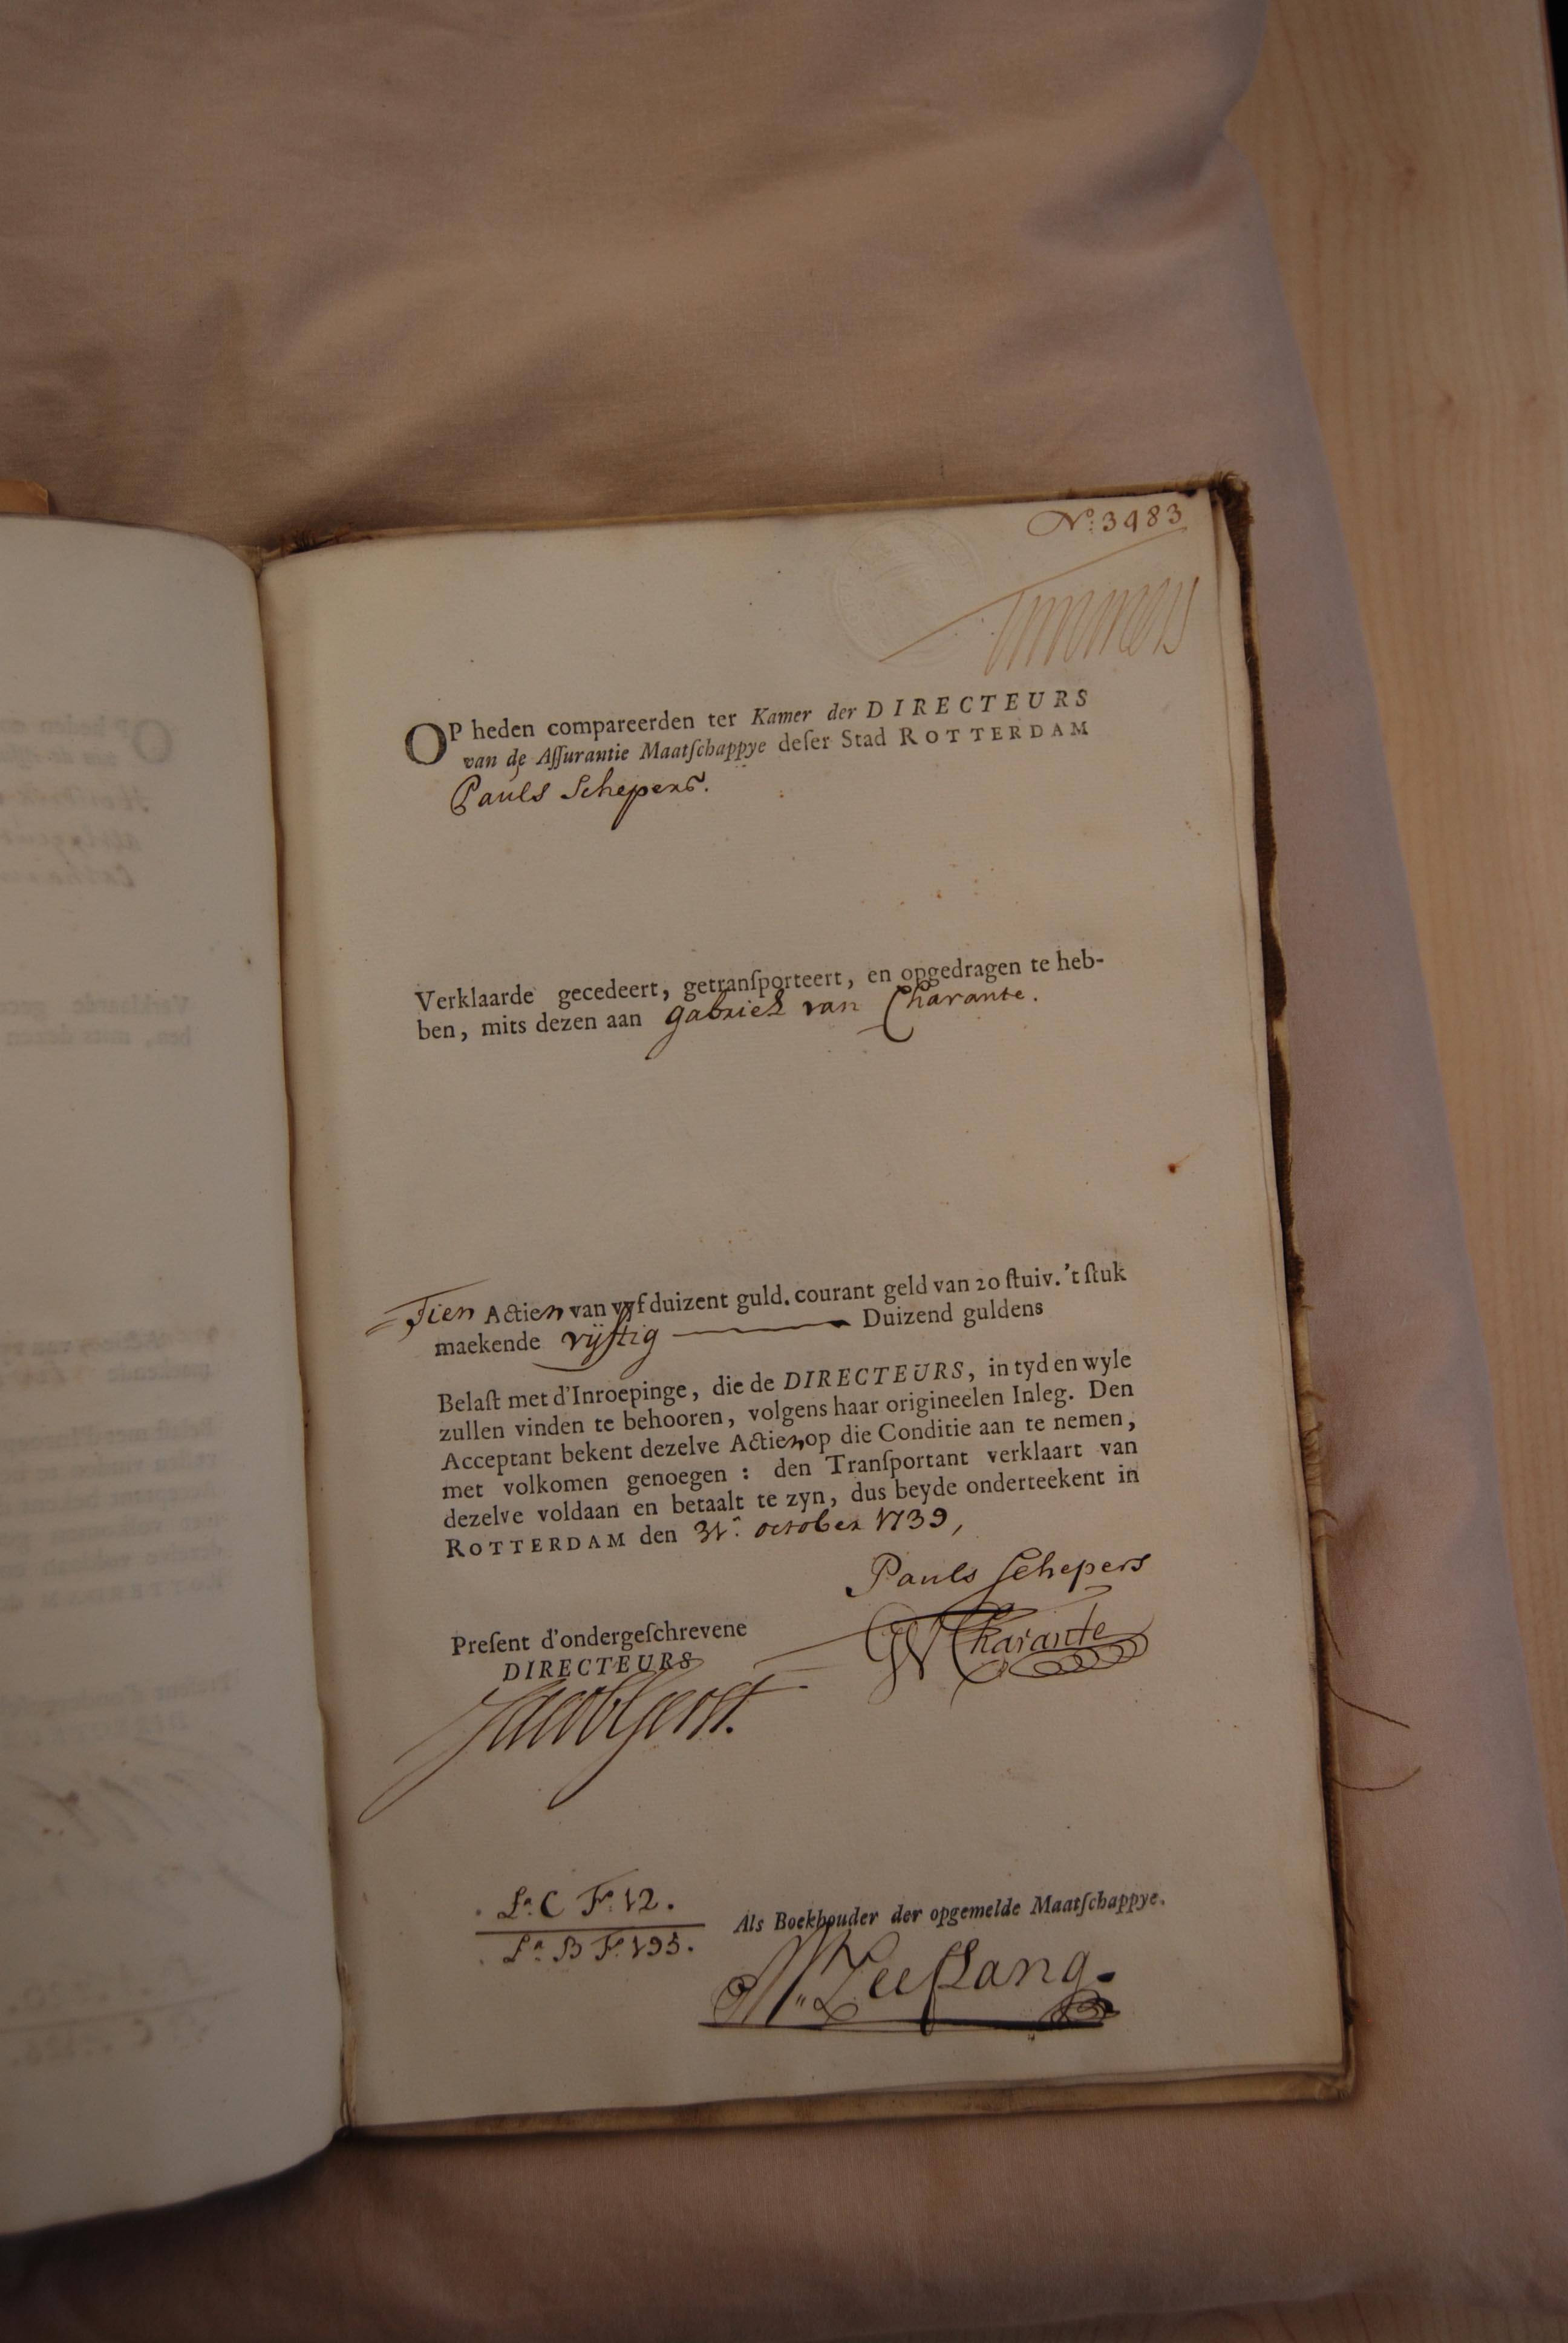 No: 3483
Timmers
OP heden compareerden ter Kamer der DIRECTEURS
van de Aſſurantie Maatſchappye deſer Stad ROTTERDAM
Pauls Schepers.
Verklaarde gecedeert, getranſporteert, en opgedragen te heb-
ben, mits dezen aan Gabriel van Charante.
Tien Actien van vyf duizent guld. courant geld van 20 ſtuiv. 't ſtuk
maekende vijftig Duizend guldens
Belaſt met d'Inroepinge, die de DIRECTEURS, in tyd en wyle
zullen vinden te behooren, volgens haar origineelen Inleg. Den
Acceptant bekent dezelve Actien op die Conditie aan te nemen,
met volkomen genoegen : den Tranſportant verklaart van
dezelve voldaan en betaalt te zyn, dus beyde onderteekent in
ROTTERDAM den 31. october 1739,
Pauls Schepers
GV Charante
Preſent d'ondergeſchrevene
DIRECTEURS
Jacob Gerst.
La. C Fo. 12.
La. B Fo. 195.
Als Boekhouder der opgemelde Maatſchappye.
M. Zeeflang.